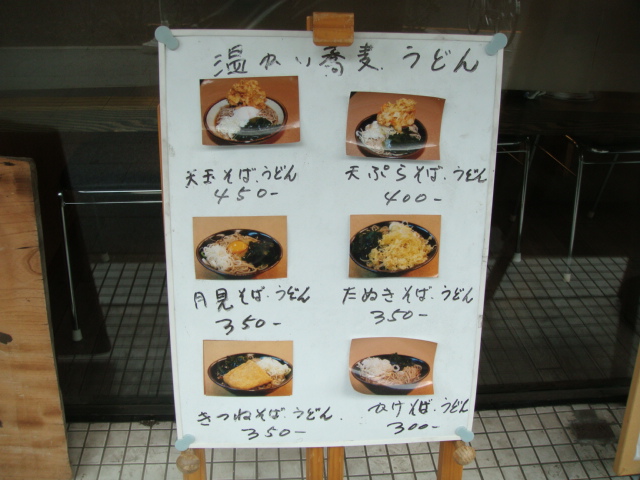 温かい蕎麦.うどん
天玉そば.うどん
450-
天ぷらそば.うどん
400-
月見そば.うどん
350-
たぬきそば.うどん
350-
きつねそば.うどん.
350-
かけそば.うどん
300-